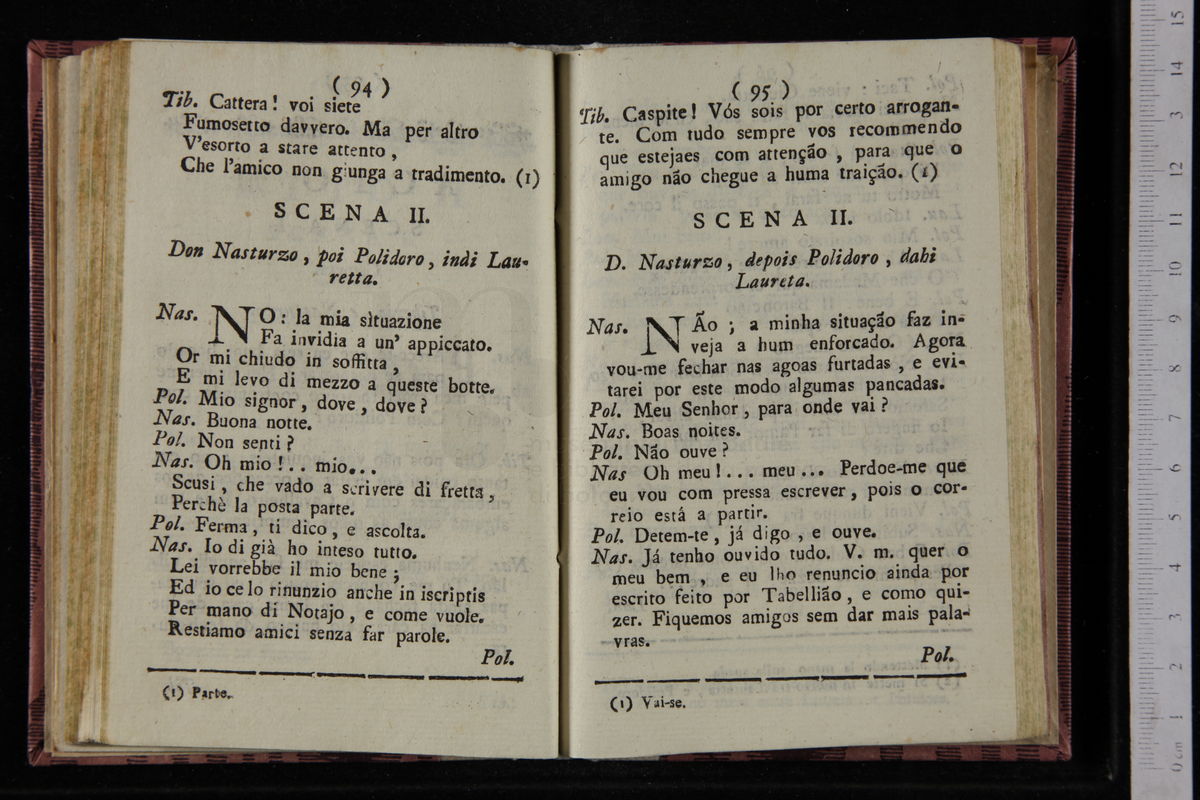 ( 94 )
Tib. Cattera! voi siete
Fumosetto davvero. Ma per altro
V'esorto a stare attento,
Che l'amico non giunga a tradimento. (1)
SCENA II.
Don Nasturzo, poi Polidoro, indi Lau-
retta.
Nas. NO: la mia situazione
Fa invidia a un' appiccato.
Or mi chiudo in soffitta,
E mi levo di mezzo a queste botte.
Pol. Mio signor, dove, dove?
Nas. Buona notte.
Pol. Non senti?
Nas. Oh mio!.. mio...
Scusi, che vado a scrivere di fretta,
Perchè la posta parte.
Pol. Ferma, ti dico, e ascolta.
Nas. Io di già ho inteso tutto.
Lei vorrebbe il mio bene;
Ed io ce lo rinunzio anche in iscriptis
Per mano di Notajo, e come vuole.
Restiamo amici senza far parole.
Pol.
(1) Parte.
( 95 )
Tib. Caspite! Vós sois por certo arrogan-
te. Com tudo sempre vos recommendo
que estejaes com attenção, para que o
amigo não chegue a huma traição. (1)
SCENA II.
D. Nasturzo, depois Polidoro, dahi
Laureta.
Nas. NÃo; a minha situação faz in-
veja a hum enforcado. Agora
vou-me fechar nas agoas furtadas, e evi-
tarei por este modo algumas pancadas.
Pol. Meu Senhor, para onde vai?
Nas. Boas noites.
Pol. Não ouve?
Nas Oh meu!... meu... Perdoe-me que
eu vou com pressa escrever, pois o cor-
reio está a partir.
Pol. Detem-te, já digo, e ouve.
Nas. Já tenho ouvido tudo. V. m. quer o
meu bem, e eu lho renuncio ainda por
escrito feito por Tabellião, e como qui-
zer. Fiquemos amigos sem dar mais pala-
vras.
Pol.
(1) Vai-se.
0 cm 1 2 3 4 5 6 7 8 9 10 11 12 13 14 15